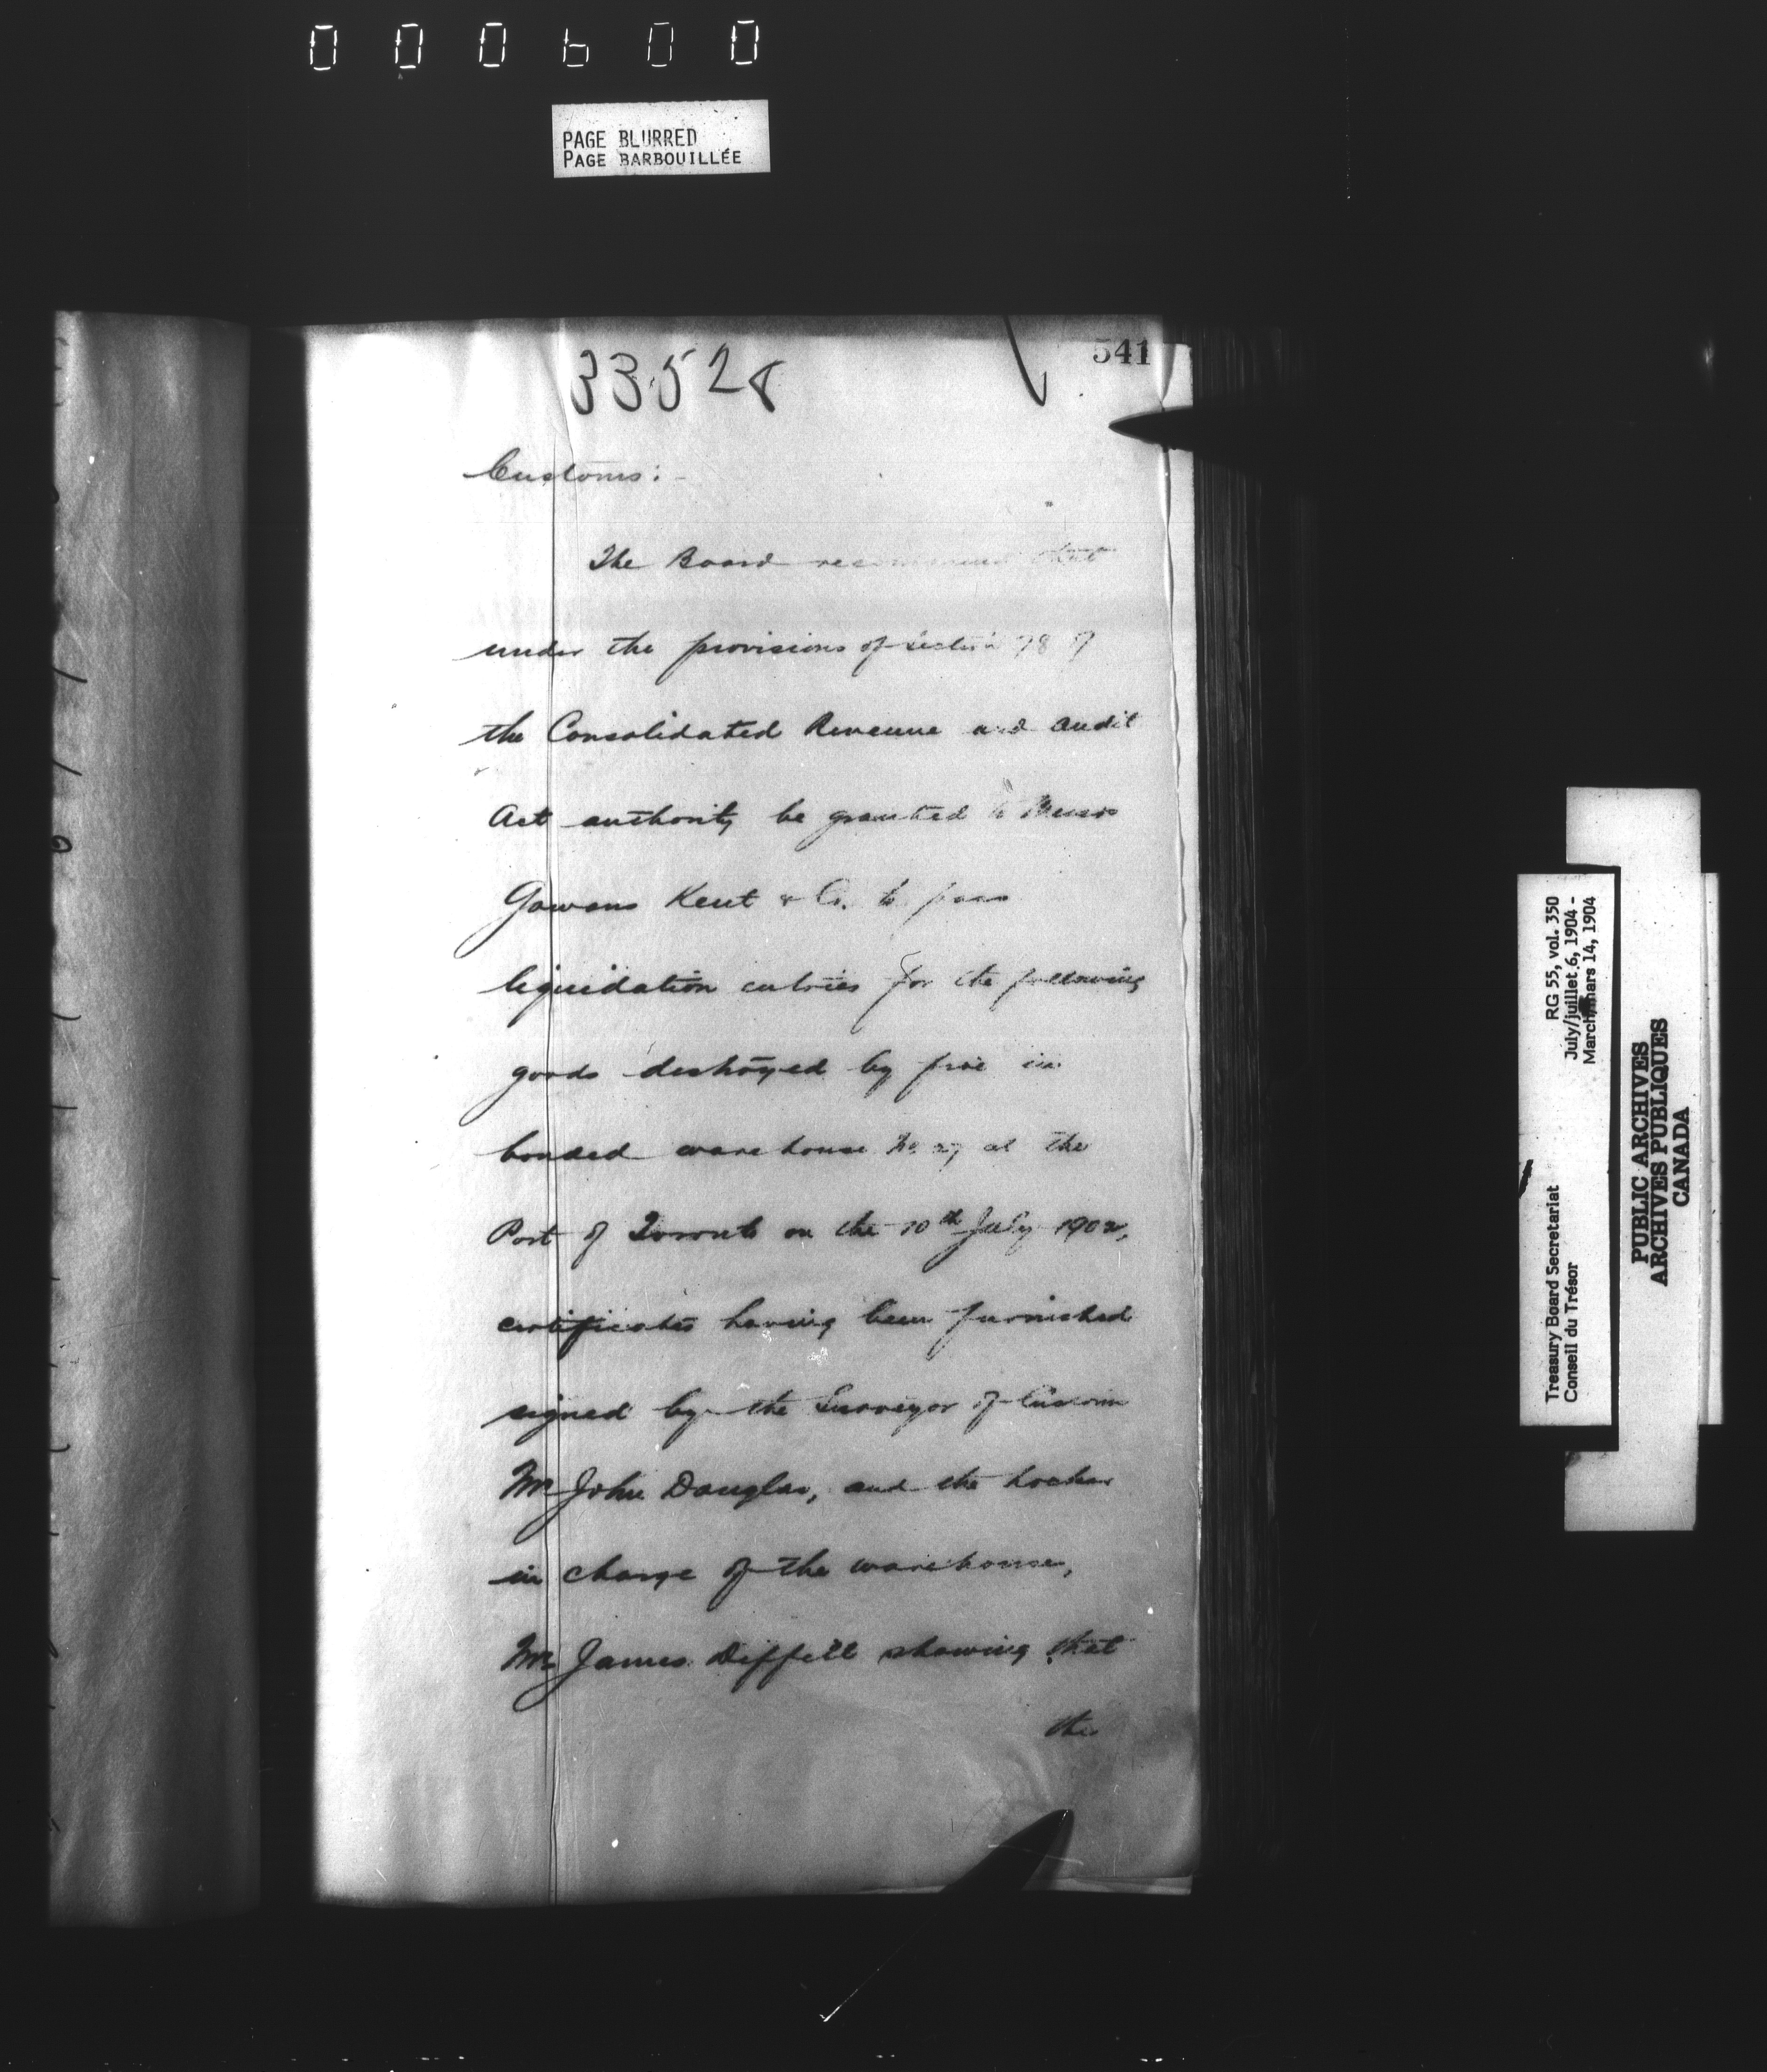 000600
PAGE BLURRED
PAGE BARBOUILLÉE
541
33528
Customs:-
The Board recommend that
under the provisions of section 78 of
the Consolidated Revenue and Audit
Act authority be granted to Messrs
Gowans Kent & Co. to pass
liquidation entries for the following
goods destroyed by fire in
bonded warehouse No 27 at the
Port of Toronto on the 10th July 1902,
certificates having been furnished
signed by the Surveyor of Customs
Mr John Douglas, and the Locker
in charge of the warehouse,
Mr James Diffill showing that
the
Treasury Board Secretariat RG 55, vol. 350
Conseil du Trésor July/juillet 6, 1904 -
March/mars 14, 1904
PUBLIC ARCHIVES
ARCHIVES PUBLIQUES
CANADA